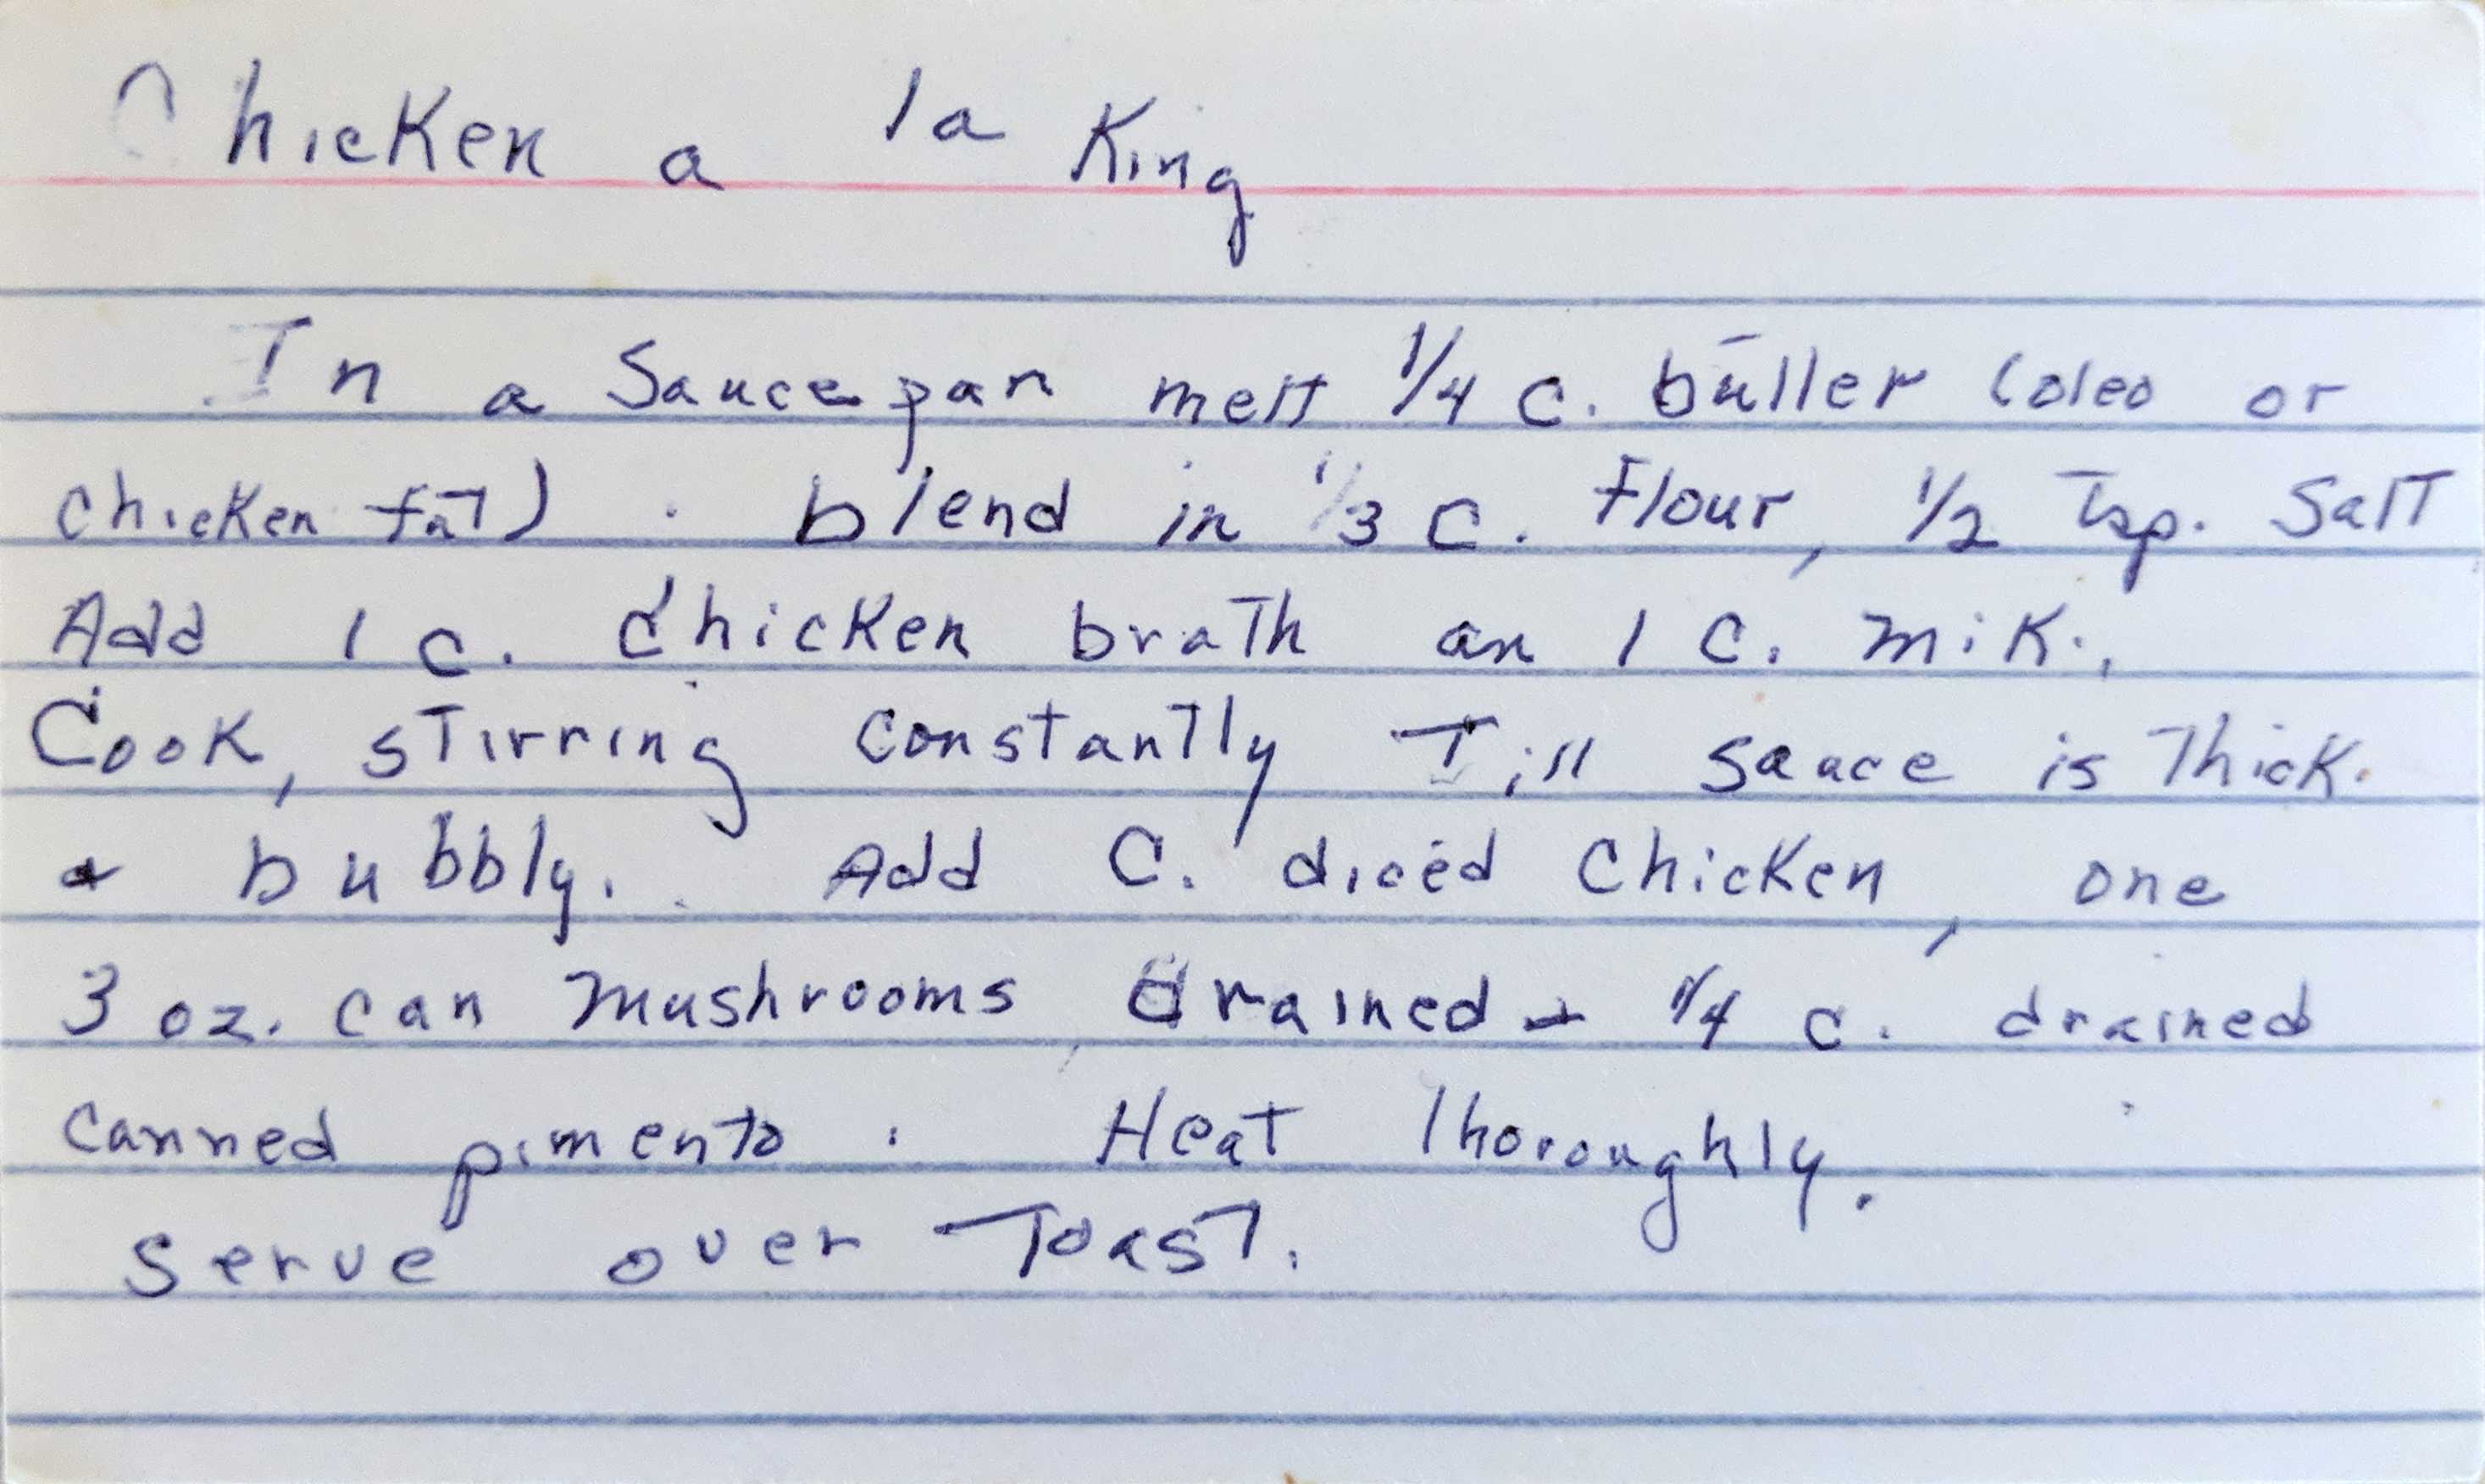 Chicken a la King
In a Saucepan melt 1/4 c. butter (oleo or
chicken fat). blend in 1/3 c. Flour, 1/2 Tsp. Salt
Add 1 c. Chicken brath an 1 C. mik.
Cook, stirring constantly Till sauce is Thick.
+ bubbly. Add C. diced Chicken, one
3 oz. can mushrooms drained + 1/4 c. drained
canned pimento. Heat Thoroughly.
Serve over Toast.